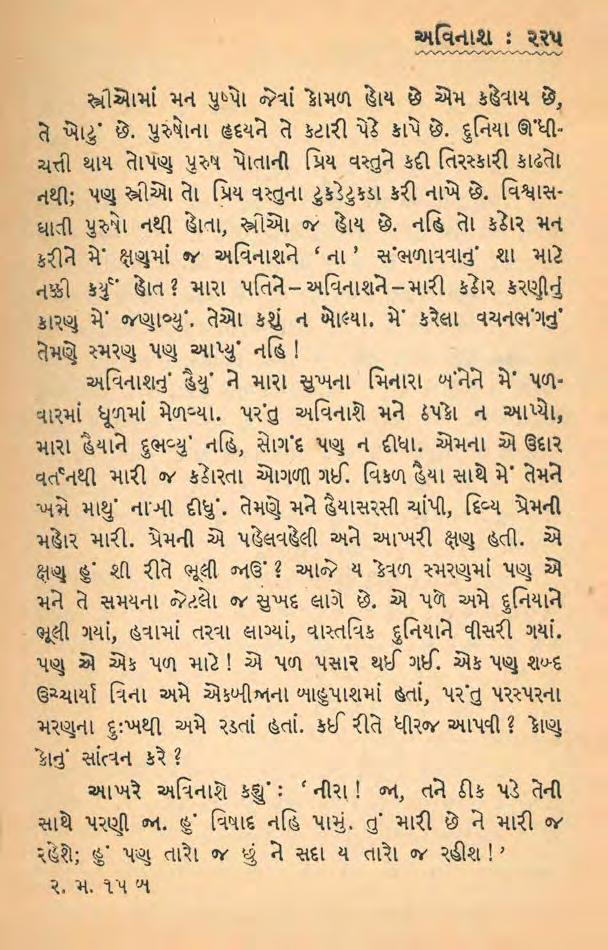 અવિનાશ : ૨૨૫
સ્ત્રીઓમાં મન પુષ્પો જેવાં કોમળ હોય છે એમ કહેવાય છે,
તે ખોટું છે. પુરુષોના હૃદયને તે કટારી પેઠે કાપે છે. દુનિયા ઊંધી-
ચત્તી થાય તોપણ પુરુષ પોતાની પ્રિય વસ્તુને કદી તિરસ્કારી કાઢતો
નથી; પણ સ્ત્રીઓ તો પ્રિય વસ્તુના ટુકડેટુકડા કરી નાખે છે. વિશ્વાસ-
ઘાતી પુરુષો નથી હોતા, સ્ત્રીઓ જ હોય છે. નહિ તો કઠોર મન
કરીને મેં ક્ષણમાં જ અવિનાશને ‘ના’ સંભળાવવાનું શા માટે
નક્કી કર્યું હોત? મારા પતિને–અવિનાશને–મારી કઠોર કરણીનું
કારણ મેં જણાવ્યું. તેઓ કશું ન બોલ્યા. મેં કરેલા વચનભંગનું
તેમણે સ્મરણ પણ આપ્યું નહિ!
અવિનાશનું હૈયું ને મારા સુખના મિનારા બંનેને મેં પળ-
વારમાં ધૂળમાં મેળવ્યા. પરંતુ અવિનાશે મને ઠપકો ન આપ્યો,
મારા હૈયાને દુભવ્યું નહિ, સોગંદ પણ ન દીધા. એમના એ ઉદાર
વર્તનથી મારી જ કઠોરતા ઓગળી ગઈ. વિકળ હૈયા સાથે મેં તેમને
ખભે માથું નાખી દીધું. તેમણે મને હૈયાસરસી ચાંપી, દિવ્ય પ્રેમની
મહોર મારી. પ્રેમની એ પહેલવહેલી અને આખરી ક્ષણ હતી. એ
ક્ષણ હું શી રીતે ભૂલી જાઉં? આજે ય કેવળ સ્મરણમાં પણ એ
મને તે સમયના જેટલો જ સુખદ લાગે છે. એ પળે અમે દુનિયાને
ભૂલી ગયાં, હવામાં તરવા લાગ્યાં, વાસ્તવિક દુનિયાને વીસરી ગયાં.
પણ એ એક પળ માટે! એ પળ પસાર થઈ ગઈ. એક પણ શબ્દ
ઉચ્ચાર્યા વિના અમે એકબીજાના બાહુપાશમાં હતાં, પરંતુ પરસ્પરના
મરણના દુઃખથી અમે રડતાં હતાં. કઈ રીતે ધીરજ આપવી? કોણ
કોનું સાંત્વન કરે?
આખરે અવિનાશે કહ્યું: ‘નીરા! જા, તને ઠીક પડે તેની
સાથે પરણી જા. હું વિષાદ નહિ પામું. તું મારી છે ને મારી જ
રહેશે; હું પણ તારો જ છું ને સદા ય તારો જ રહીશ!’
ર. મ. ૧૫ બ